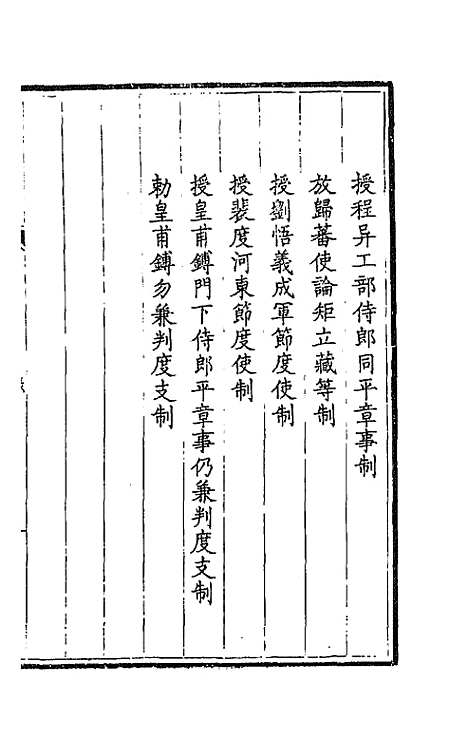 授程异工部侍郎同平章事制
放歸蕃使論矩立藏等制
授劉悟義成軍節度使制
授裴度河東節度使制
授皇甫鎛門下侍郎平章事仍兼判度支制
勅皇甫鎛勿兼判度支制